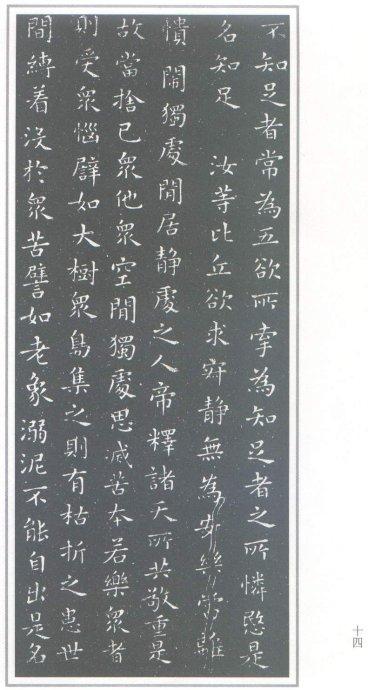 不知足者常為五欲所牽為知足者之所憐愍是
名知足　汝等比丘欲求寂静無為安樂當離
憒閙獨處閒居静處之人帝釋諸天所共敬重是
故當捨己衆他衆空閒獨處思滅苦本若樂衆者
則受衆惱譬如大樹衆鳥集之則有枯折之患世
間縛着没於衆苦譬如老象溺泥不能自出是名
十四